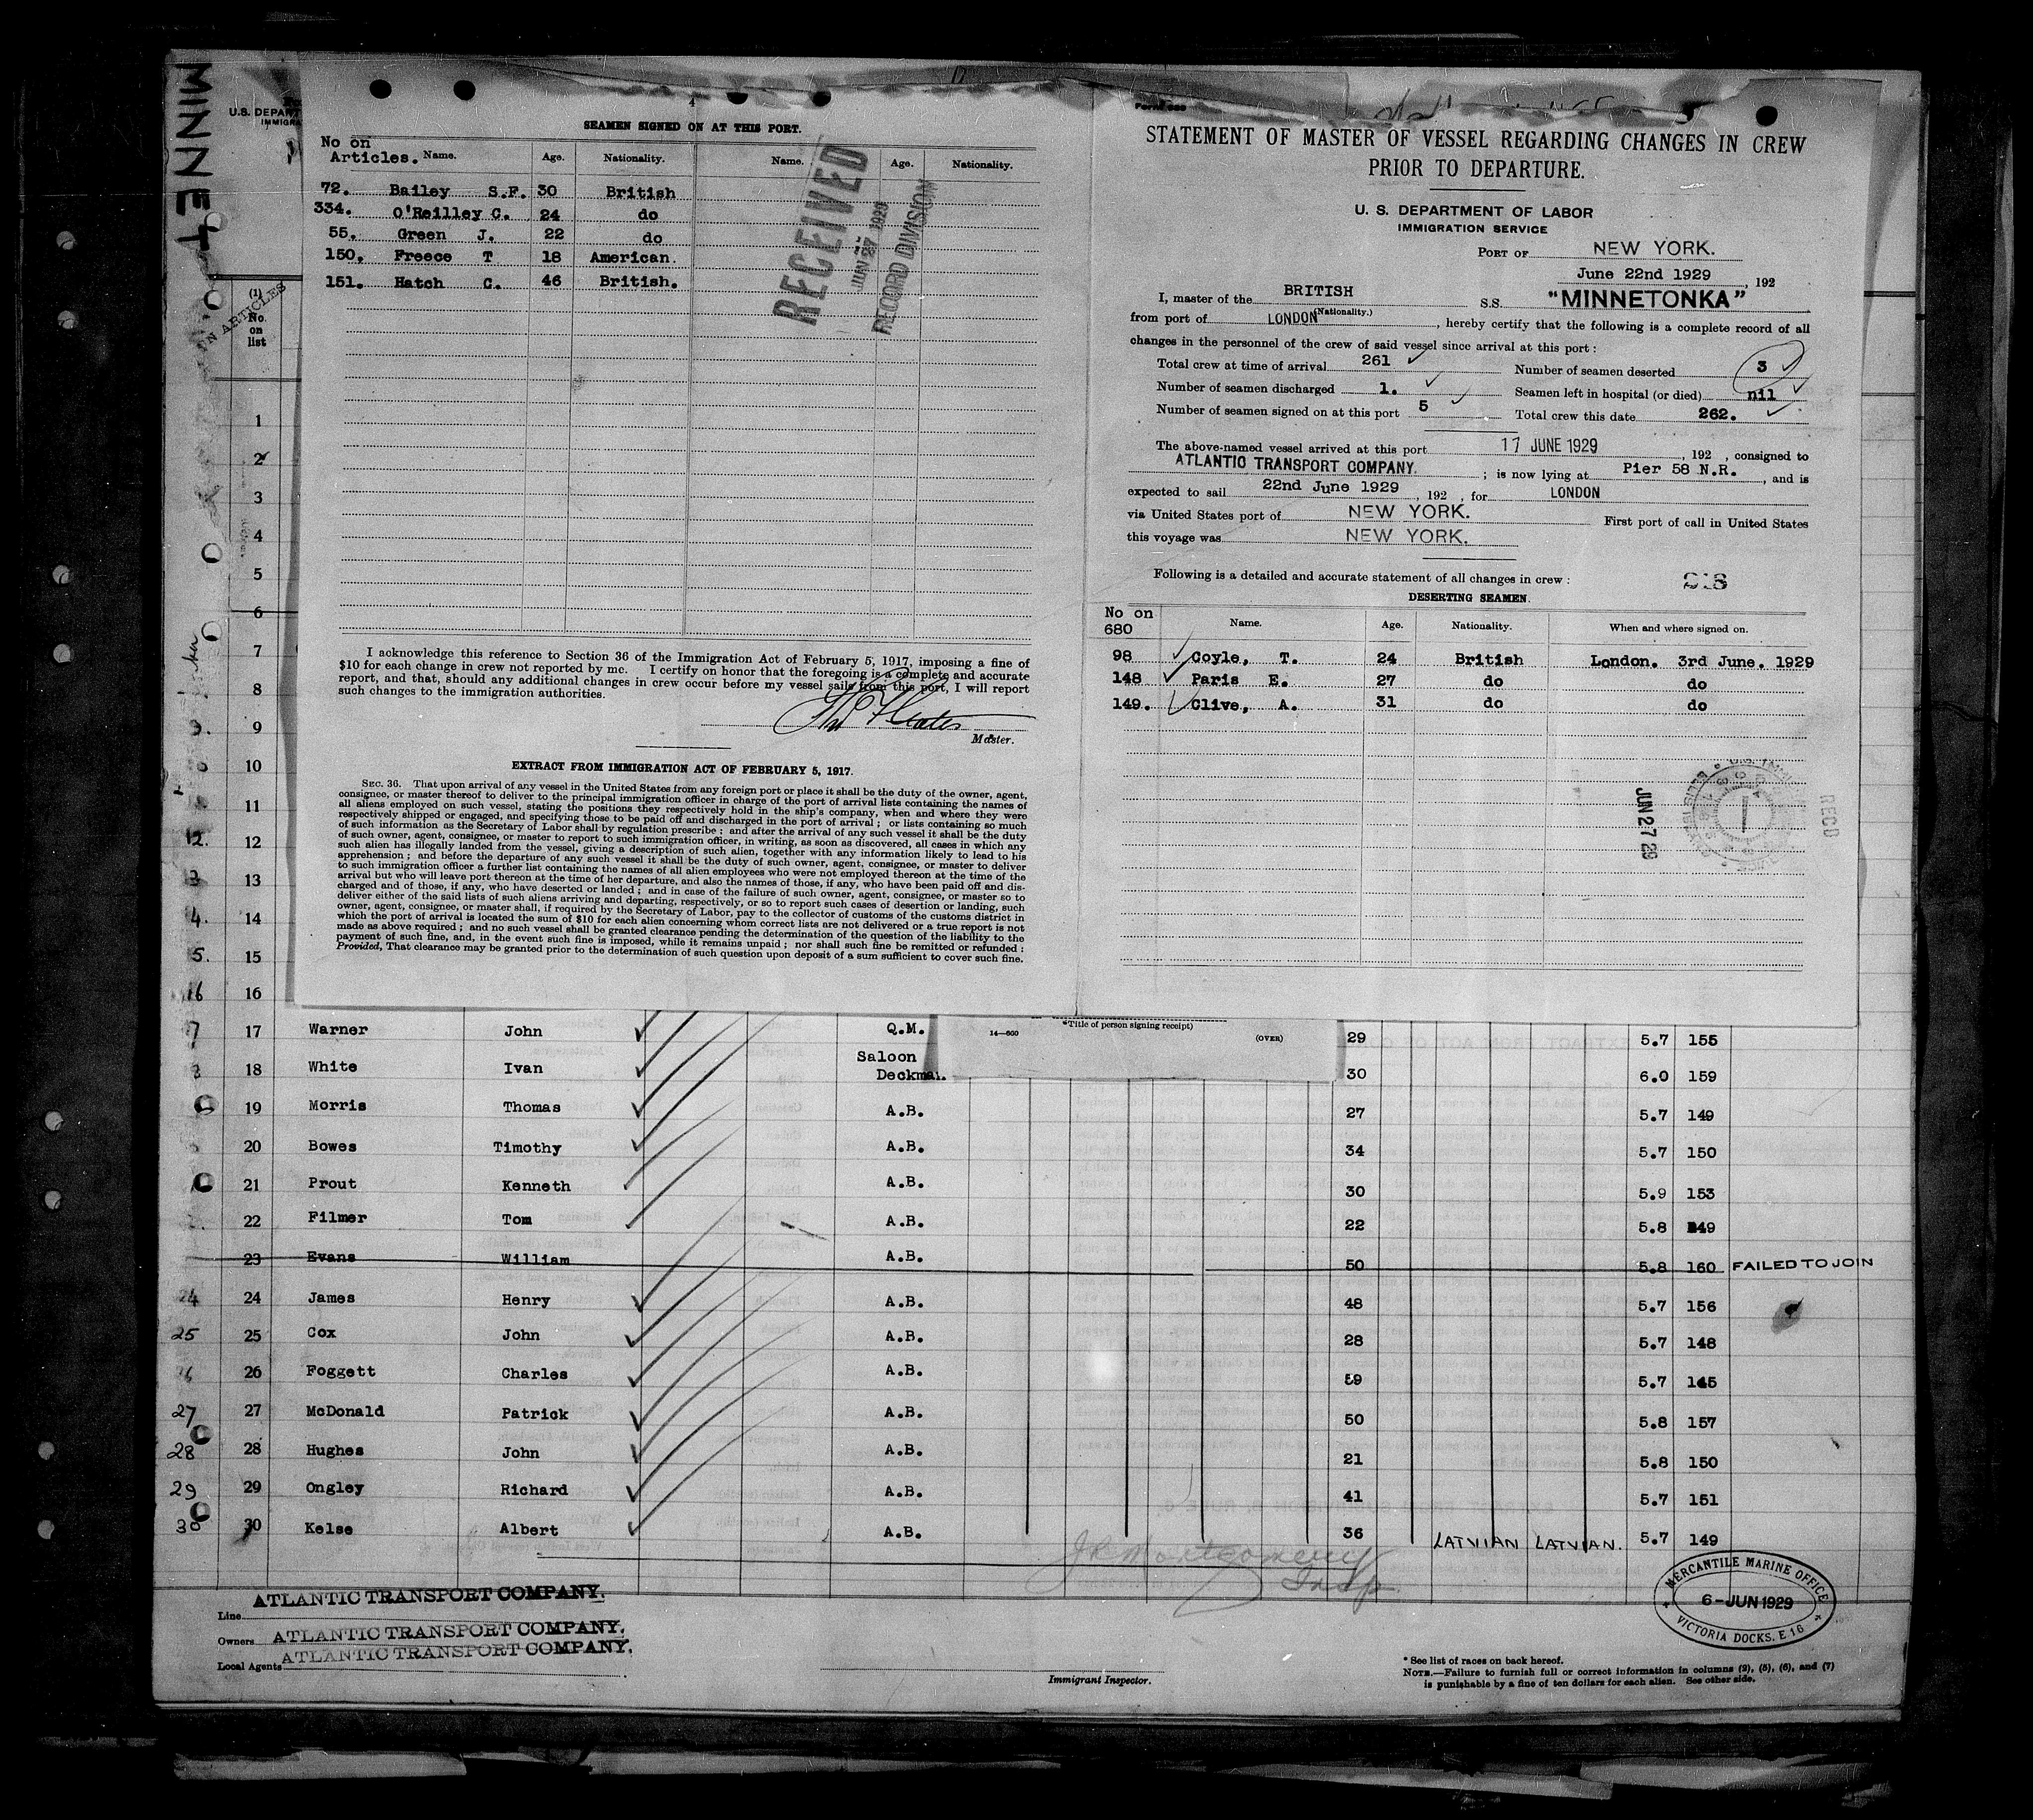 MINNET
U.S. DEPART
IMMIGRA
4
SEAMEN SIGNED ON AT THIS PORT.
No on
Articles. Name. Age. Nationality. Name. Age. Nationality.
72. Bailey S.F. 30 British
334. O'Reilley C. 24 do
55. Green J. 22 do
150. Freece T 18 American.
151. Hatch C. 46 British.
RECEIVED
JUN 27 1929
RECORD DIVISION
I acknowledge this reference to Section 36 of the Immigration Act of February 5, 1917, imposing a fine of
$10 for each change in crew not reported by me. I certify on honor that the foregoing is a complete and accurate
report, and that, should any additional changes in crew occur before my vessel sails from this port, I will report
such changes to the immigration authorities.
Master.
EXTRACT FROM IMMIGRATION ACT OF FEBRUARY 5, 1917.
SEC. 36. That upon arrival of any vessel in the United States from any foreign port or place it shall be the duty of the owner, agent,
consignee, or master thereof to deliver to the principal immigration officer in charge of the port of arrival lists containing the names of
all aliens employed on such vessel, stating the positions they respectively hold in the ship's company, when and where they were
respectively shipped or engaged, and specifying those to be paid off and discharged in the port of arrival; or lists containing so much
of such information as the Secretary of Labor shall by regulation prescribe; and after the arrival of any such vessel it shall be the duty
of such owner, agent, consignee, or master to report to such immigration officer, in writing, as soon as discovered, all cases in which any
such alien has illegally landed from the vessel, giving a description of such alien, together with any information likely to lead to his
apprehension; and before the departure of any such vessel it shall be the duty of such owner, agent, consignee, or master to deliver
to such immigration officer a further list containing the names of all alien employees who were not employed thereon at the time of the
arrival but who will leave port thereon at the time of her departure, and also the names of those, if any, who have been paid off and dis-
charged and of those, if any, who have deserted or landed; and in case of the failure of such owner, agent, consignee, or master so to
deliver either of the said lists of such aliens arriving and departing, respectively, or so to report such cases of desertion or landing, such
owner, agent, consignee, or master shall, if required by the Secretary of Labor, pay to the collector of customs of the customs district in
which the port of arrival is located the sum of $10 for each alien concerning whom correct lists are not delivered or a true report is not
made as above required; and no such vessel shall be granted clearance pending the determination of the question of the liability to the
payment of such fine, and, in the event such fine is imposed, while it remains unpaid; nor shall such fine be remitted or refunded:
Provided, That clearance may be granted prior to the determination of such question upon deposit of a sum sufficient to cover such fine.
STATEMENT OF MASTER OF VESSEL REGARDING CHANGES IN CREW
PRIOR TO DEPARTURE.
U. S. DEPARTMENT OF LABOR
IMMIGRATION SERVICE
PORT OF NEW YORK.
June 22nd 1929, 192
I, master of the BRITISH S.S. "MINNETONKA"
(Nationality.)
from port of LONDON, hereby certify that the following is a complete record of all
changes in the personnel of the crew of said vessel since arrival at this port:
Total crew at time of arrival 261 Number of seamen deserted 3
Number of seamen discharged 1. Seamen left in hospital (or died) nil
Number of seamen signed on at this port 5 Total crew this date 262.
The above-named vessel arrived at this port 17 JUNE 1929, 192 , consigned to
ATLANTIC TRANSPORT COMPANY. ; is now lying at Pier 58 N.R., and is
expected to sail 22nd June 1929, 192 , for LONDON
via United States port of NEW YORK. First port of call in United States
this voyage was NEW YORK.
Following is a detailed and accurate statement of all changes in crew:
DESERTING SEAMEN.
No on
680 Name. Age. Nationality. When and where signed on.
98 Coyle, T. 24 British London. 3rd June. 1929
148 Paris E. 27 do do
149. Clive, A. 31 do do
JUN 27 29
REC'D
(1)
No.
on
list
IN ARTICLES
1
2
3
4
5
6
7
8
9. 9
10
11
12. 12
13
4. 14
5. 15
16 16
14—600 *Title of person signing receipt)
(OVER)
7 17 Warner John Q.M. 29 5.7 155
18 White Ivan Saloon Deckman. 30 6.0 159
19 Morris Thomas A.B. 27 5.7 149
20 Bowes Timothy A.B. 34 5.7 150
21 Prout Kenneth A.B. 30 5.9 153
22 Filmer Tom A.B. 22 5.8 149
23 Evans William A.B. 50 5.8 160 FAILED TO JOIN
24 24 James Henry A.B. 48 5.7 156
25 25 Cox John A.B. 28 5.7 148
26 Foggett Charles A.B. 59 5.7 145
27 27 McDonald Patrick A.B. 50 5.8 157
28 28 Hughes John A.B. 21 5.8 150
29 29 Ongley Richard A.B. 41 5.7 151
30 30 Kelse Albert A.B. 36 LATVIAN LATVIAN. 5.7 149
J R Montgomery
Insp.
Line ATLANTIC TRANSPORT COMPANY.
Owners ATLANTIC TRANSPORT COMPANY.
Local Agents ATLANTIC TRANSPORT COMPANY.
Immigrant Inspector.
MERCANTILE MARINE OFFICE
6-JUN 1929
VICTORIA DOCKS. E 16
* See list of races on back hereof.
NOTE.—Failure to furnish full or correct information in columns (2), (5), (6), and (7)
is punishable by a fine of ten dollars for each alien. See other side.